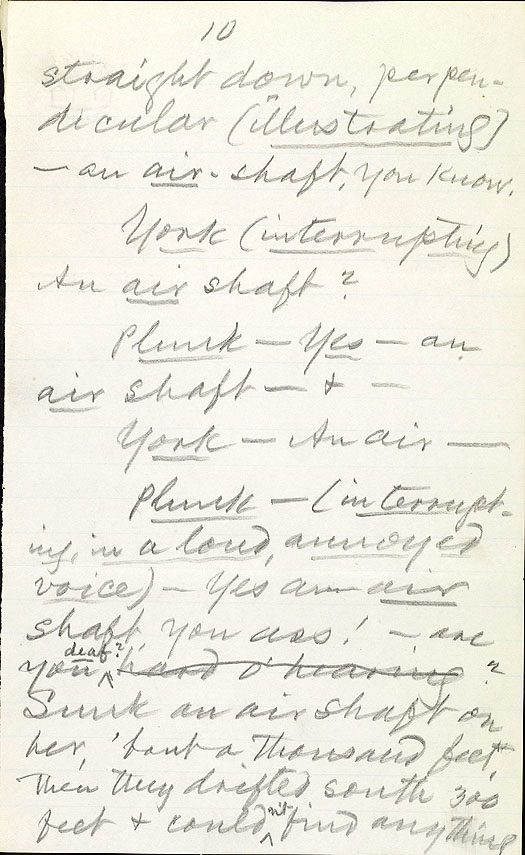 10
straight down, perpen-
dicular (illustrating)
— an air-shaft, you know.
York (interrupting)
An air shaft?
Plunk — Yes — an
air shaft — & —
York — An air —
Plunk — (interrupt-
ing, in a loud, annoyed
voice) — Yes an air
shaft, you ass! — are
deaf?
you hard o' hearing ?
Sunk an air shaft on
her, 'bout a thousand feet, &
then they drifted south 300
feet & couldn't find anything